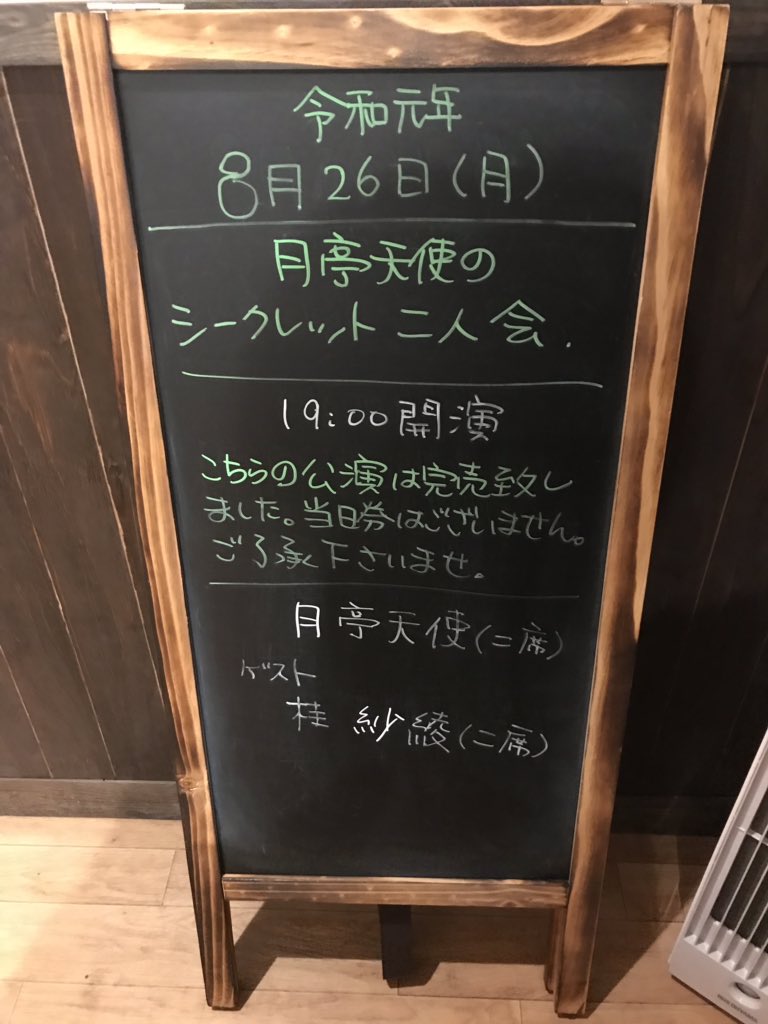 令和元年
8月26日(月)
月亭天使の
シークレット二人会.
19:00開演
こちらの公演は完売致し
ました。当日券はございません。
ご了承下さいませ。
月亭天使(二席)
ゲスト
桂 紗綾(二席)